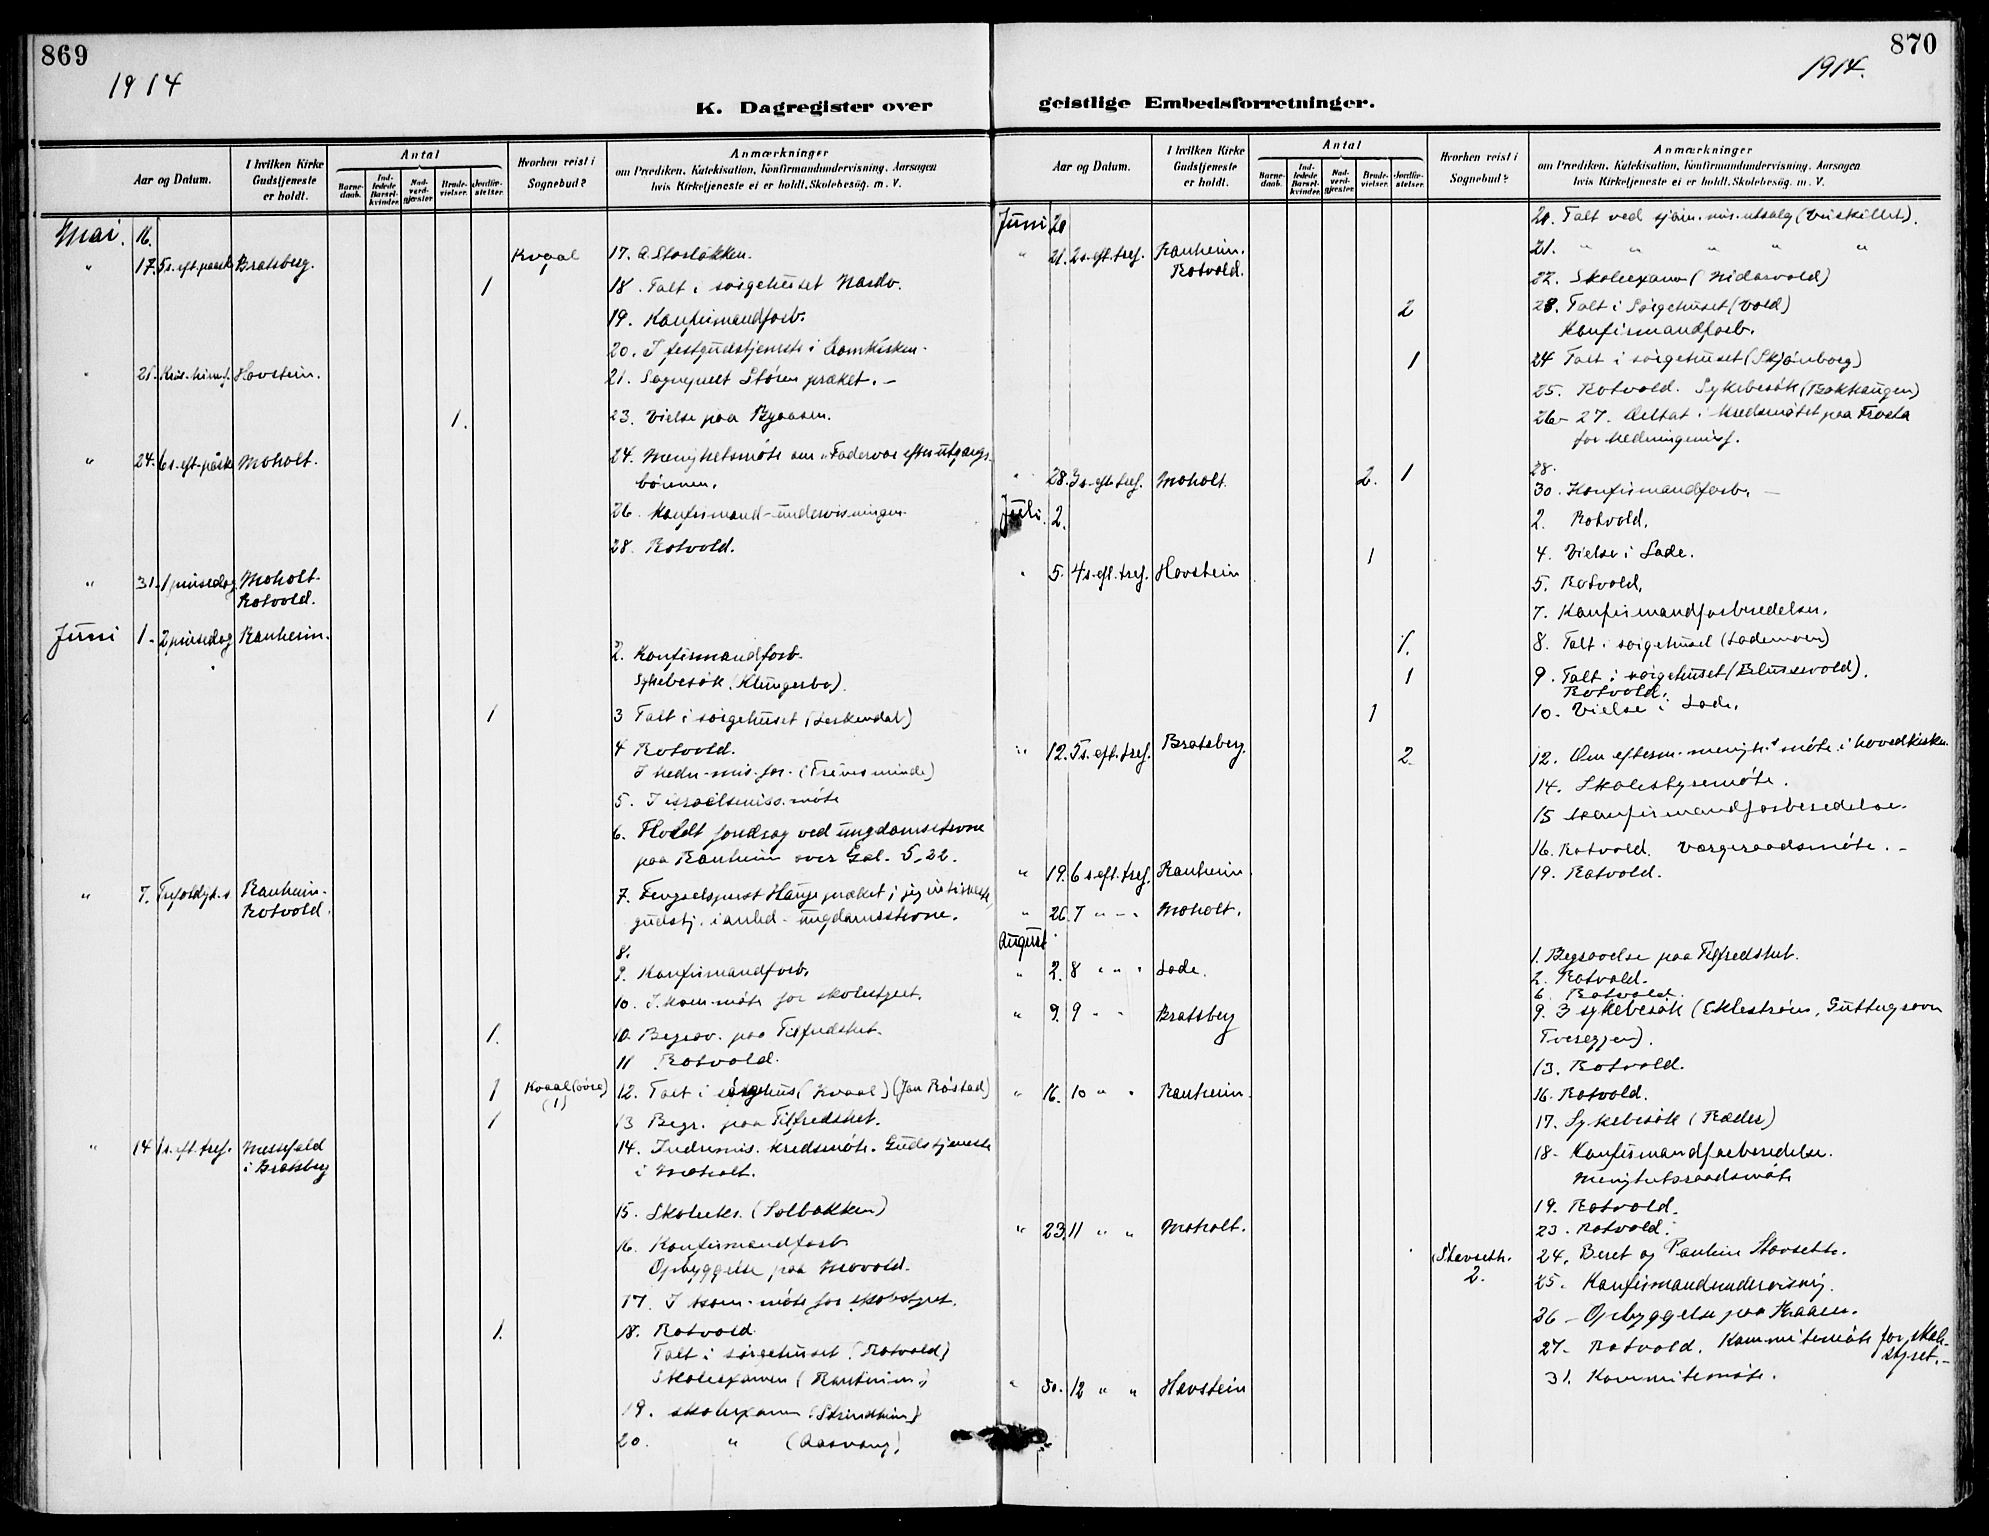 869
1914
K. Dagregister over
Aar og Datum.
I hvilken Kirke Gudstjeneste er holdt.
Antal
Barne-daab.
Ind-ledede Barsel-kvinder.
Nad-verd-gjæster.
Brude-vielser.
Jordfæ-stelser.
Hvorhen reist i Sognebud?
Anmærkninger
om Prædiken, Katekisation, Konfirmandundervisning, Aarsagen
hvis Kirketjeneste ei er holdt, Skolebesøg. m. V.
Mai. 16.
" 17. 5 s. eft. paaske Bratsberg. Kvaal 1 17. A. Storløkken.
1 18. Talt i sørgehuset Nardo.
19. Konfirmandforb.
20. I festgudstjeneste i Domkirken.
" 21. Kris. himf. Havstein. 21. Sogneprest Støren præket. –
1. 23. Vielse paa Byaasen.
" 24. 6 s. eft. påske Moholt. 24. Menighetsmøte om "Fadervor efter utgangs-
bønnen.
26. Konfirmand-undervisningen.
28. Rotvold.
" 31. 1 pinsedag Moholt.
Rotvold.
Juni 1. 2 pinsedag Ranheim.
2. Konfirmandforb.
Sykebesøk. (Klungerbo).
1 3 Talt i sørgehuset (Leskendal)
4 Rotvold.
I hedn-mis. for. (Frivesminde)
5. I israelsmiss. møte
6. Holdt foredrag ved ungdomsstevne
paa Ranheim over Gal. 5, 22.
" 7. Trefoldigh. s Ranheim.
Rotvold.
7. Fengselsprest Hauge præket i
gudstj. i anled. ungdomsstevne.
8.
9. Konfirmandforb.
10. I kom-møte for skolestyret.
1. 10. Begrav. paa Tilfredshet.
11 Rotvold.
1 Kvaal (øvre) (1) 12. Talt i sørgehus (Kvaal) (Jon Røstad)
1 13 Begr. paa Tilfredshet.
" 14 1 s. eft. tref. Messefald
i Bratsberg
14. Indremis. kredsmøte. Gudstjeneste
i Moholt.
15. Skoleeks. (Solbakken)
16. Konfirmandforb.
Opbyggelse paa Movold.
17. I kom-møte for skolestyret.
1. 18. Rotvold
Talt i sørgehuset (Rotvold)
Skoleexamen (Ranheim)
19. skoleexamen (Strindheim)
20. " (Aasvang)
870
1914.
geistlige Embedsforretninger.
Aar og Datum.
I hvilken Kirke Gudstjeneste er holdt.
Antal
Barne-daab.
Ind-ledede Barsel-kvinder.
Nad-verd-gjæster.
Brude-vielser.
Jordfæ-stelser.
Hvorhen reist i Sognebud?
Anmærkninger
om Prædiken, Katekisation, Konfirmandundervisning, Aarsagen
hvis Kirketjeneste ei er holdt, Skolebesøg. m. V.
Juni 20 20. Talt ved sjøm. mis. utsalg
" 21. 2 s. eft. tref. Ranheim.
Rotvold.
21. " " " " "
22. Skoleexamen (Nidarvold)
2 23. Talt i Sørgehuset (Vold)
Konfirmandforb.
1 24 Talt i sørgehuset (Skjønborg)
25. Rotvold. Sykebesøk (Bakhaugen)
26 – 27. Deltat i kredsmøtet paa Frosta
for hedningemisj.
" 28. 3 s. eft. tref. Moholt 2. 1 28.
30. Konfirmandforb. –
Juli. 2. 2. Rotvold.
1 4. Vielse i Lade.
" 5. 4 s. eft. tref. Havstein 5. Rotvold.
7. Konfirmandforberedelse.
1. 8. Talt i sørgehuset (Lademoen)
1 9. Talt i sørgehuset (Blussevold).
Rotvold.
1 10. Vielse i Lade.
" 12. 5 s. eft. tref. Bratsberg. 2. 12. Om efterm. menigh.s møte i hovedkirken
14. Skolestyremøte.
15 Konfirmandforberedelse.
16. Rotvold. Vergeraadsmøte. –
" 19. 6 s. eft. tref. Ranheim. 19. Rotvold.
" 26. 7 " – " Moholt.
August.
1. Begravelse paa Tilfredshet.
" 2. 8 " " " Lade. 2. Rotvold.
6. Rotvold.
" 9. 9 " " Bratsberg 9. 3 sykebesøk (Eklestrøm,
Tvereggen).
13. Rotvold.
" 16. 10 " " Ranheim. 16. Rotvold.
17. Sykebesøk (Ræder)
18. Konfirmandforberedelse.
Menighetsraadsmøte
19. Rotvold.
" 23. 11 " " Moholt. 23. Rotvold.
Stavseth. 2. 24. Beret og Pauline Stavseth.
25. Konfirmandundervisning.
26 – Opbyggelse paa
27 – Rotvold. Kommitemøte for skole-
styret. –
" 30. 12 " " Havstein 31. Kommitemøte.